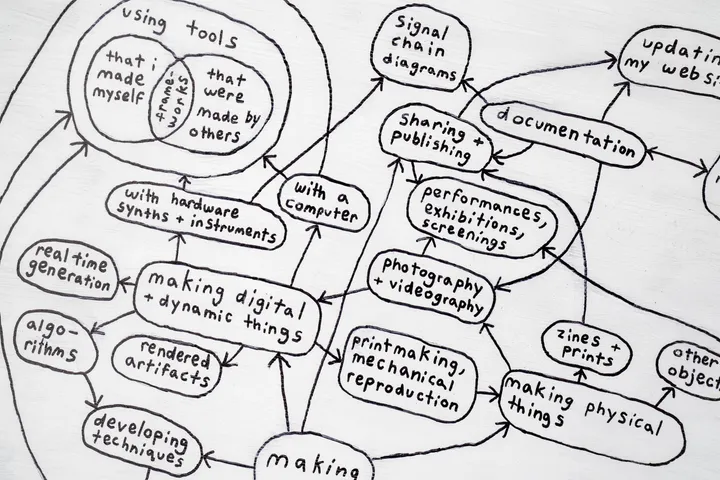 using tools
that i
made
myself
frame-
works
that
were
made by
others
Signal
chain
diagrams
updatin
my websi
documentation
sharing +
publishing
with hardware
synths + instruments
with a
computer
performances,
exhibitions,
screenings
real time
generation
making digital
+ dynamic things
photography
+ videography
algo-
rithms
rendered
artifacts
printmaking,
mechanical
reproduction
zines +
prints
other
object
making physical
things
developing
techniques
making